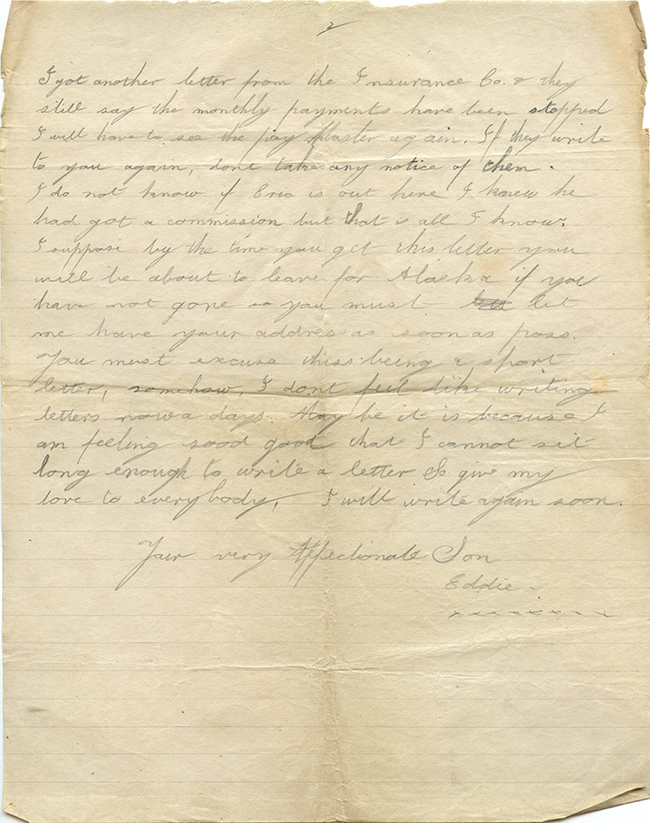 2
I got another letter from the Insurance Co. & they
still say the monthly payments have been stopped
I will have to see the pay Master again. If they write
to you again, dont take any notice of them.
I do not know if Eric is out here I knew he
had got a commission but that is all I know.
I suppose by the time you get this letter you
will be about to leave for Alaska if you
have not gone so you must let
me have your address as soon as poss.
You must excuse this being a short
letter, somehow, I dont feel like writing
letters now a days. May be it is because I
am feeling sood good that I cannot sit
long enough to write a letter So give my
love to everybody, I will write again soon.
Your very Affectionate Son
Eddie.
x x x x x x x x